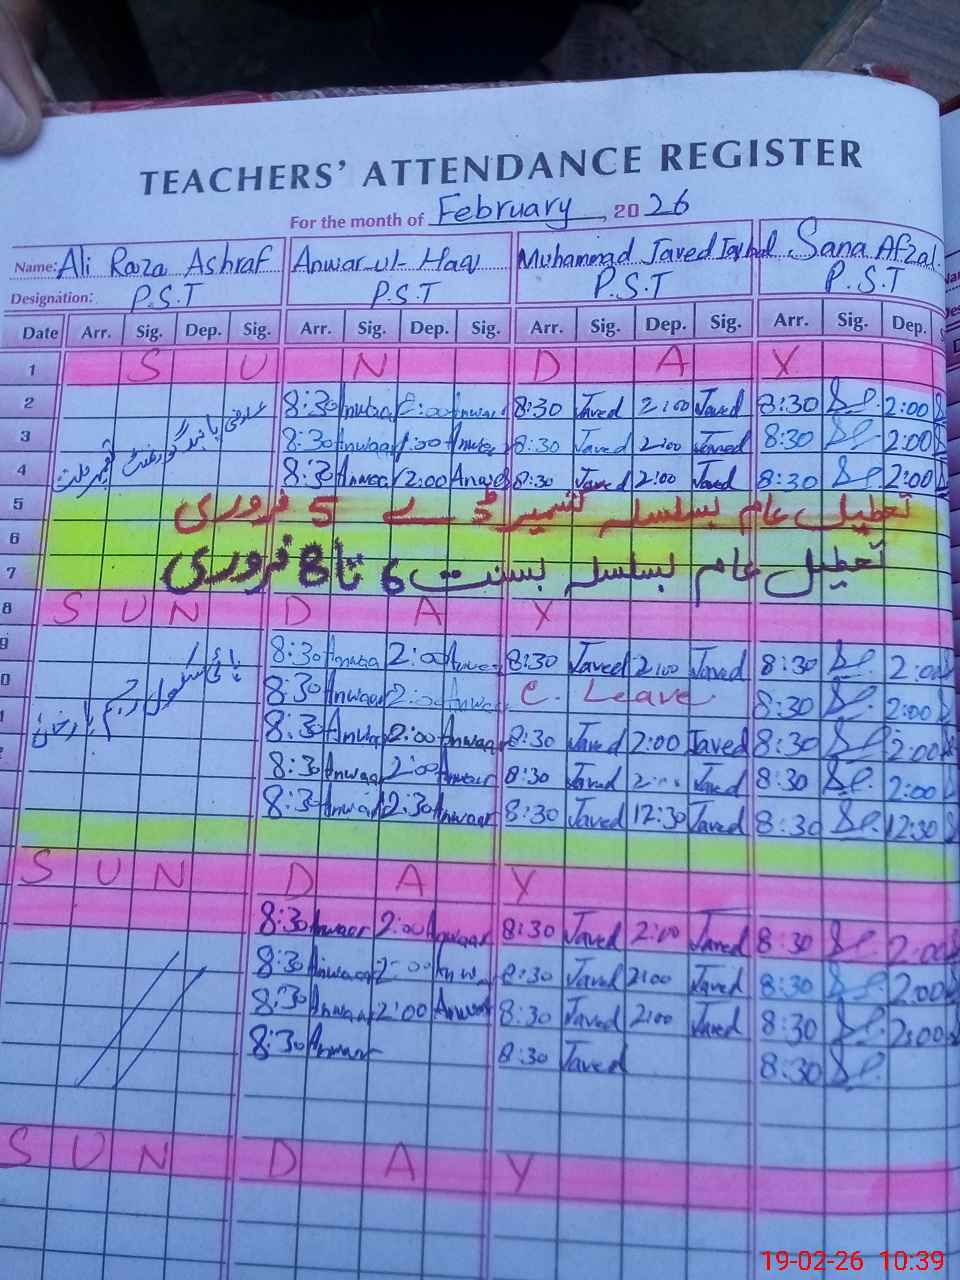 TEACHERS' ATTENDANCE REGISTER
For the month of February, 2026
Name: Ali Raza Ashraf Anwar-ul-Haq Muhammad Javed Iqbal Sana Afzal
Designation: P.S.T P.S.T P.S.T P.S.T
Date Arr. Sig. Dep. Sig. Arr. Sig. Dep. Sig. Arr. Sig. Dep. Sig. Arr. Sig. Dep.
1 S U N D A Y
2 8:30 Anwaar 2:00 Anwaar 8:30 Javed 2:00 Javed 8:30 2:00
3 8:30 Anwaar 2:00 Anwaar 8:30 Javed 2:00 Javed 8:30 2:00
4 8:30 Anwaar 2:00 Anwaar 8:30 Javed 2:00 Javed 8:30 2:00
5 تعطیل عام بسلسلہ کشمیر ڈے 5 فروری
6
7 تعطیل عام بسلسلہ بسنت 6 تا 8 فروری
8 S U N D A Y
9 8:30 Anwaar 2:00 Anwaar 8:30 Javed 2:00 Javed 8:30 2:00
0 8:30 Anwaar 2:00 Anwaar C. Leave 8:30 2:00
1 8:30 Anwaar 2:00 Anwaar 8:30 Javed 2:00 Javed 8:30 2:00
8:30 Anwaar 2:00 Anwaar 8:30 Javed 2:00 Javed 8:30 2:00
8:30 Anwaar 12:30 Anwaar 8:30 Javed 12:30 Javed 8:30 12:30
S U N D A Y
8:30 Anwaar 2:00 Anwaar 8:30 Javed 2:00 Javed 8:30 2:00
8:30 Anwaar 2:00 Anwaar 8:30 Javed 2:00 Javed 8:30 2:00
8:30 Anwaar 2:00 Anwaar 8:30 Javed 2:00 Javed 8:30 2:00
8:30 Anwaar 8:30 Javed 8:30
S U N D A Y
19-02-26 10:39